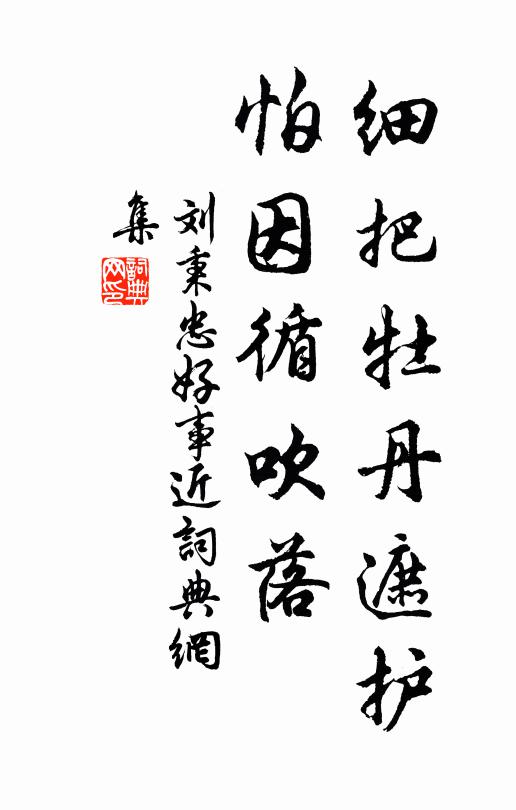 细把牡丹遮护
怕因循吹落
刘秉忠好事近詞典網
集
詞典
网印